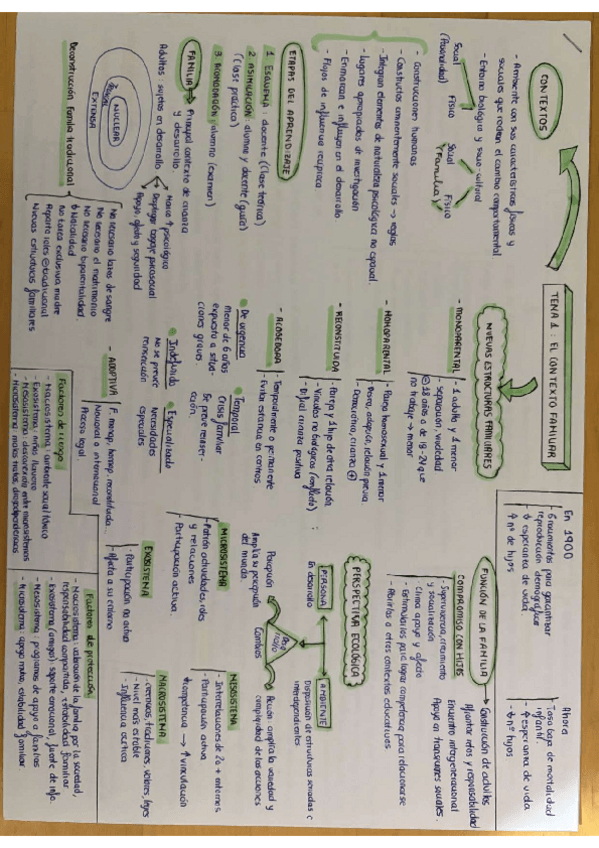 TEMA 1: EL CONTEXTO FAMILIAR
CONTEXTOS
- Ambiente con sus características físicas y
sociales que rodean el cambio comportamental
- Entorno biológico y socio-cultural
Social
(Parentalidad)
Físico
Social
Físico
(Familia)
- Construcciones humanas
- Constructos eminentemente sociales → reglas
- Integran elementos de naturaleza psicológica no casual.
- Lugares apropiados de investigación
- Enmarcan e influyen en el desarrollo
- Flujos de influencia recíproca
ETAPAS DEL APRENDIZAJE
1. ESQUEMA: docente (clase teórica)
2. ASIMILACIÓN: alumno y docente (guía)
(clase práctica)
alumno (examen)
FAMILIA → Principal contexto de crianza
y desarrollo
Adultos sujetos en desarrollo
Hacia ↑ psicológico
Desplegar bagaje psicosocial
Apoyo, afecto y seguridad
NUCLEAR
EXTENSA
Deconstrucción familia tradicional
No necesario lazos de sangre
No necesario el matrimonio
No necesario biparentalidad.
Natalidad
No tarea exclusiva madre
Reparto roles tradicional
Nuevas estructuras familiares
NUEVAS ESTRUCTURAS FAMILIARES
- MONOPARENTAL
- 1 adulto y 1 menor
separación, viudedad
18 años o de 18-24 que
no trabaje → menor
- HOMOPARENTAL
- Pareja homosexual y 1 menor
- Donante, adopción, relación previa
- RECONSTITUIDA
- Pareja y 1 hijo de otra relación
- Vínculos no biológicos (conflicto)
crianza positiva
- ACOGEDORA
- Temporalmente o permanente
- Evitar estancia en centros
De urgencia
Menor de 6 años
expuesto a situa-
ciones graves
Temporal
Crisis familiar
Se prevé reinser-
ción.
Indefinido
no se prevé
reinserción
Especializado
Necesidades
especiales
- ADOPTIVA
F. monop, homop, reconstituida...
Nacional o internacional
Proceso legal
Factores de riesgo
- Macrosistema, ambiente social tóxico
- Exosistema:
- Mesosistema: desconexión entre microsistemas
- Microsistema: malos tratos, drogodependencias
En 1900
6 nacimientos para garantizar
reproducción demográfica
esperanza de vida
nº de hijos
Ahora
Tasa baja de mortalidad
infantil
- ↑ esperanza de vida
- nº hijos
FUNCIÓN DE LA FAMILIA
→ Construcción de adultos
Afrontar retos y responsabilidad
Encuentro intergeneracional
Apoyo a transiciones sociales.
COMPROMISO CON HIJOS
- Supervivencia, crecimiento
y socialización
- Clima apoyo y afecto
- Estimularlos para lograr competencia para relacionarse
- Abrirlos a otros contextos educativos
PERSPECTIVA ECOLÓGICA
PERSONA
En desarrollo
AMBIENTE
Disposición de estructuras seriadas e
interdependientes
Percepción
Amplía su percepción
del mundo.
Cambios
Acción amplía la variedad y
complejidad de las acciones
MICROSISTEMA
- Patrón actividades, roles
y relaciones
- Participación activa.
MESOSISTEMA
- Interrelaciones de 2 o + entornos
- Participación activa
Competencia → ↑ vinculación
EXOSISTEMA
- Participación no activa
- Afecta a su entorno
MACROSISTEMA
- Creencias, tradiciones, valores, leyes
- Nivel más estable
- Influencia crítica
Factores de protección
- Macrosistema: valoración de la familia por la sociedad,
responsabilidad compartida, estabilidad familiar
- Exosistema (amigos): soporte emocional, fuente de info.
- Mesosistema: programas de apoyo a familias
- Microsistema: apoyo mutuo, estabilidad familiar